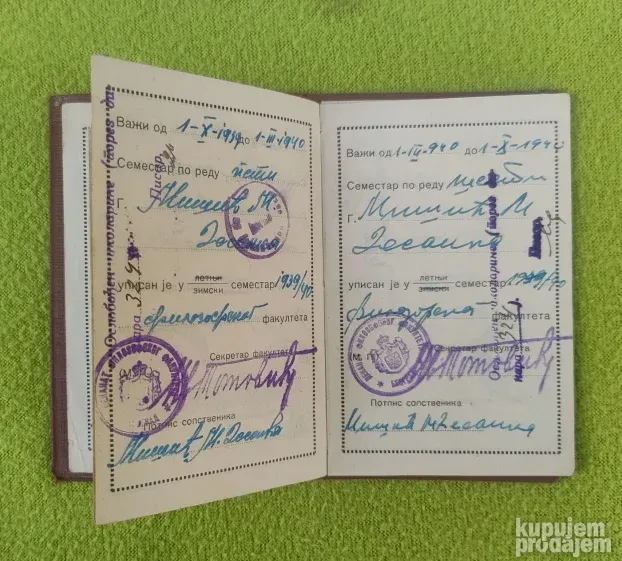 Важи од 1-X-1939 до 1-III-1940
Семестар по реду пети
Г. Мишић М.
Десанка
уписан је у летњи
зимски семестар 1939/40
филозофског факултета
Секретар факултета
(М. П.)
Потпис сопственика
Мишић М. Десанка
Ослобођен школарине
Писар,
Важи од 1-IV-940 до 1-X-1940
Семестар по реду шести
Г. Мишић М
Десанка
уписан је у летњи
зимски семестар 1939/40
факултета
Секретар факултета
(М. П.)
Потпис сопственика
Мишић М Десанка
Писар,
kupujem
prodajem